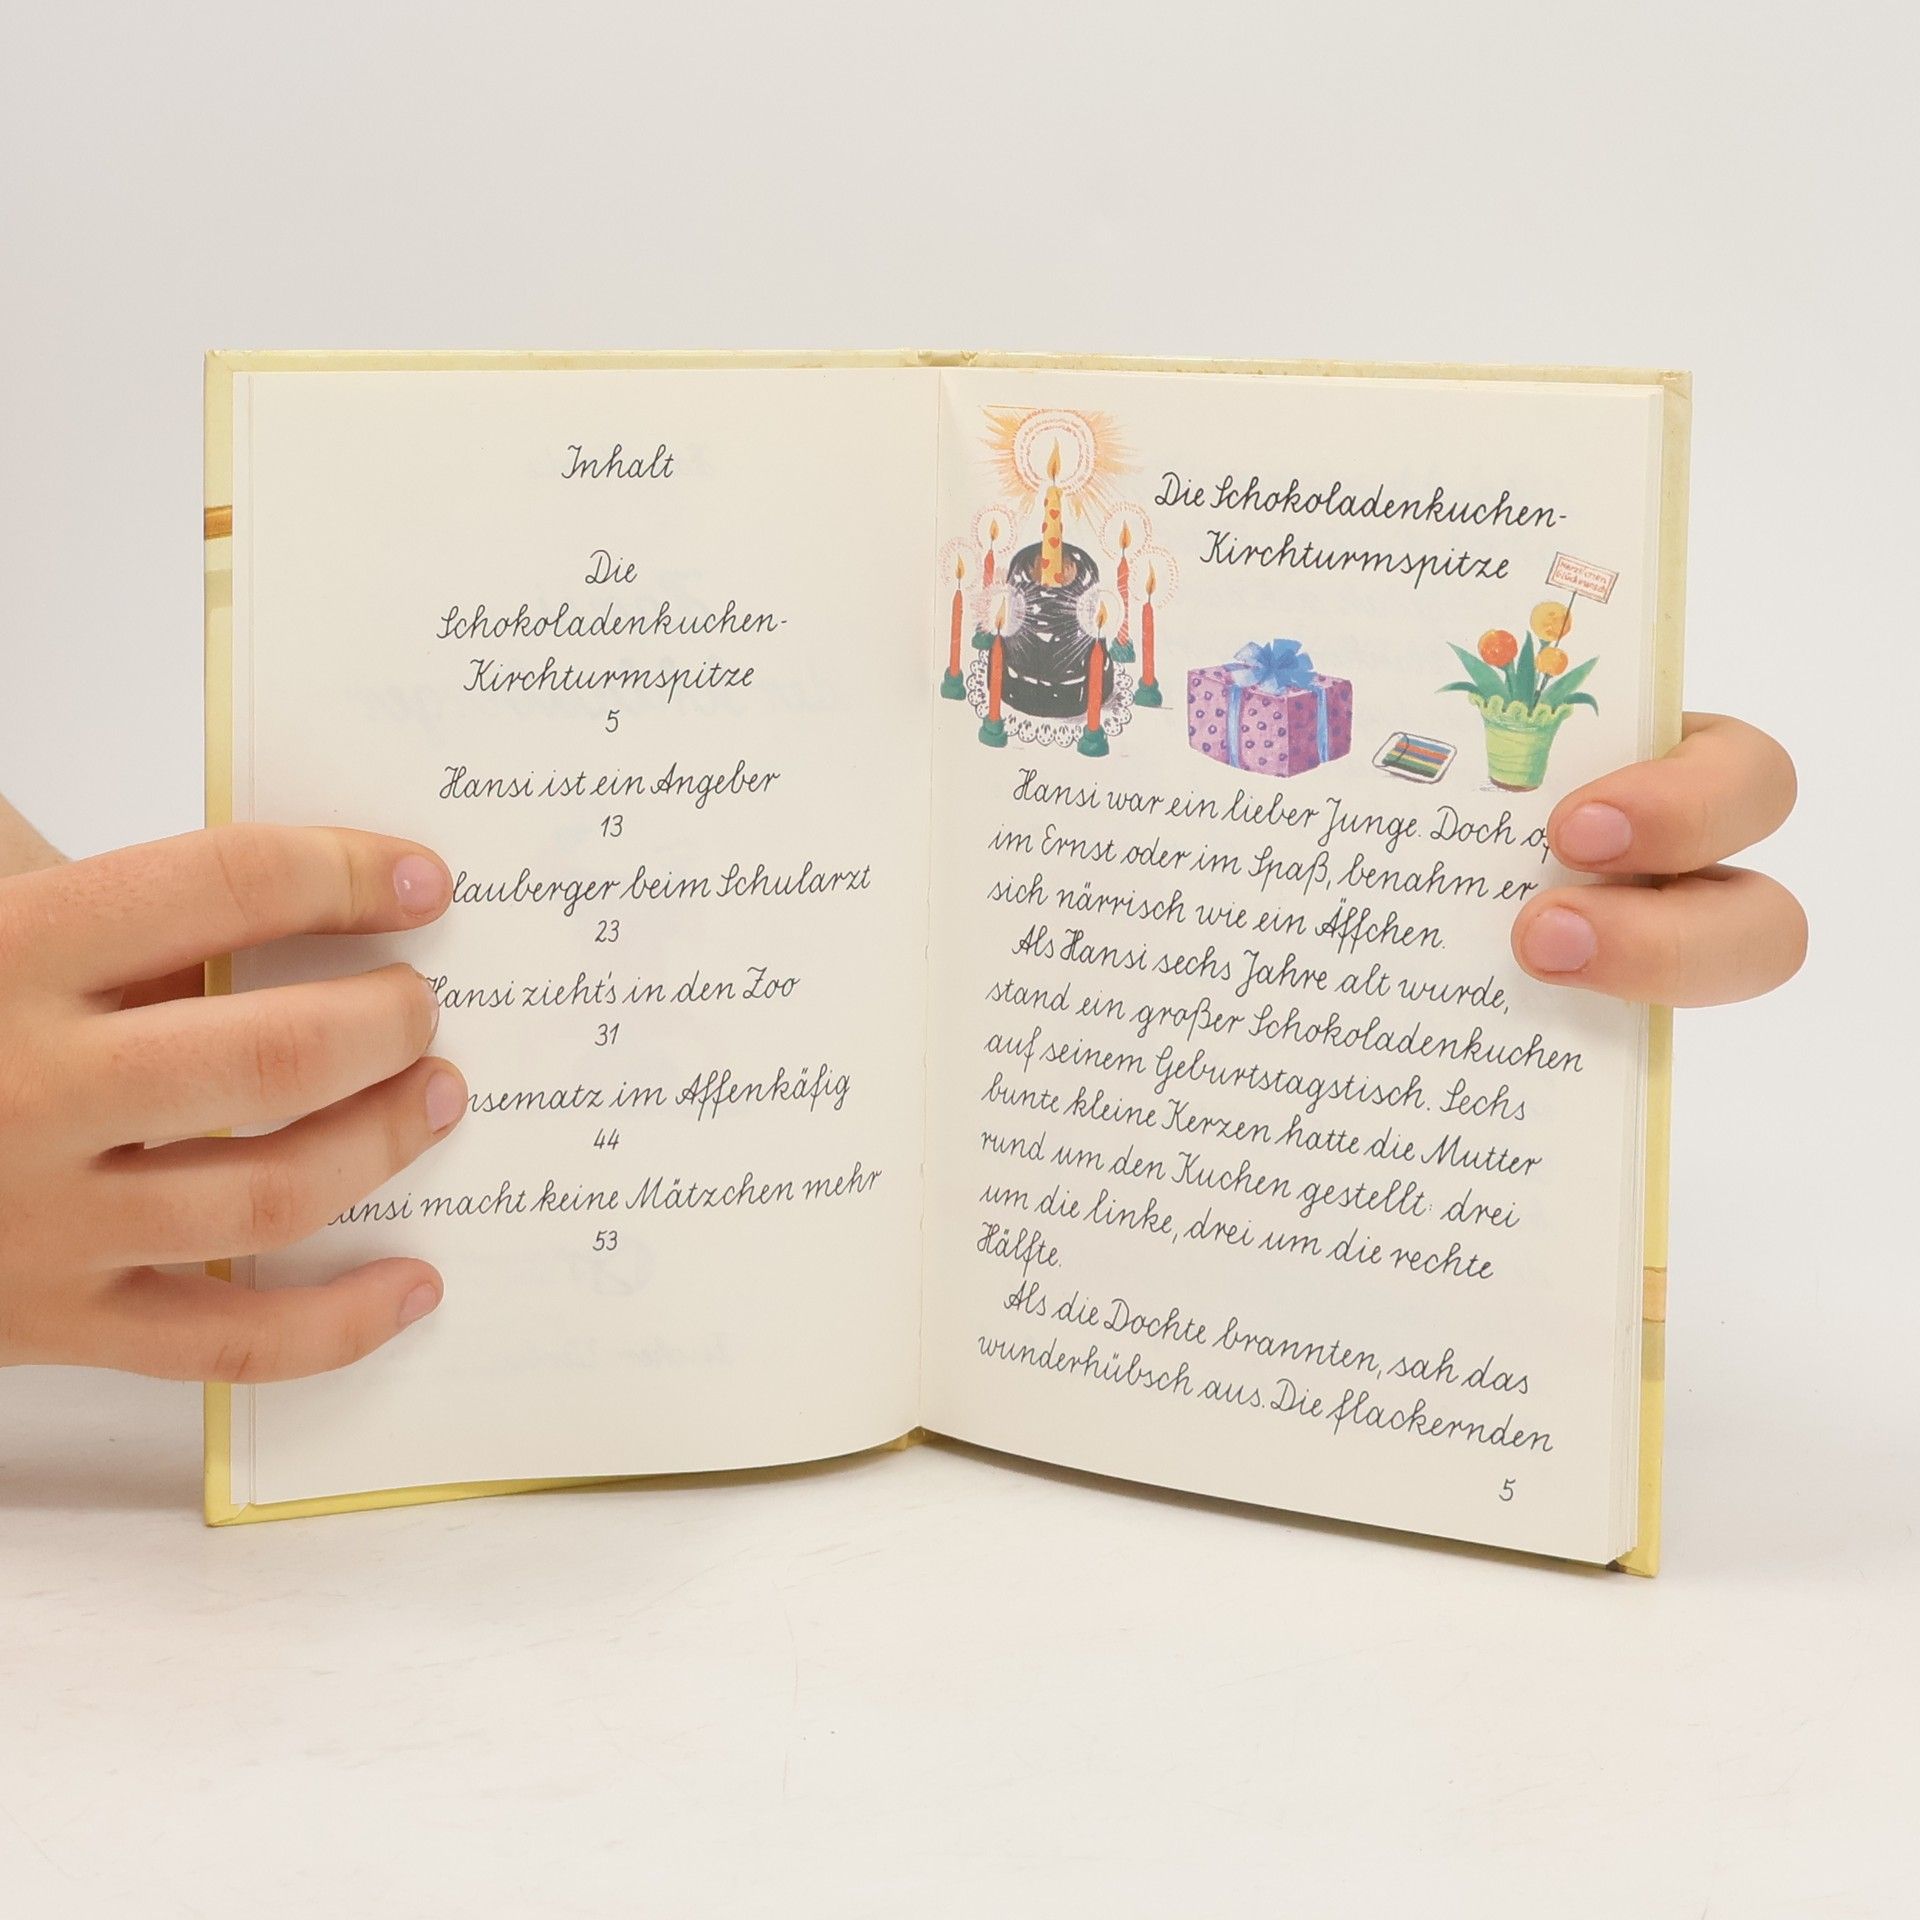 Inhalt
Die
Schokoladenkuchen-
Kirchturmspitze
5
Hansi ist ein Angeber
13
beim Schularzt
23
Hansi zieht's in den Zoo
31
im Affenkäfig
44
Hansi macht keine Mätzchen mehr
53
Die Schokoladenkuchen-
Kirchturmspitze
Herzlichen
Glückwunsch
Hansi war ein lieber Junge. Doch
im Ernst oder im Spaß, benahm er
sich närrisch wie ein Äffchen.
Als Hansi sechs Jahre alt wurde,
stand ein großer Schokoladenkuchen
auf seinem Geburtstagstisch. Sechs
bunte kleine Kerzen hatte die Mutter
rund um den Kuchen gestellt: drei
um die linke, drei um die rechte
Hälfte.
Als die Dochte brannten, sah das
wunderhübsch aus. Die flackernden
5